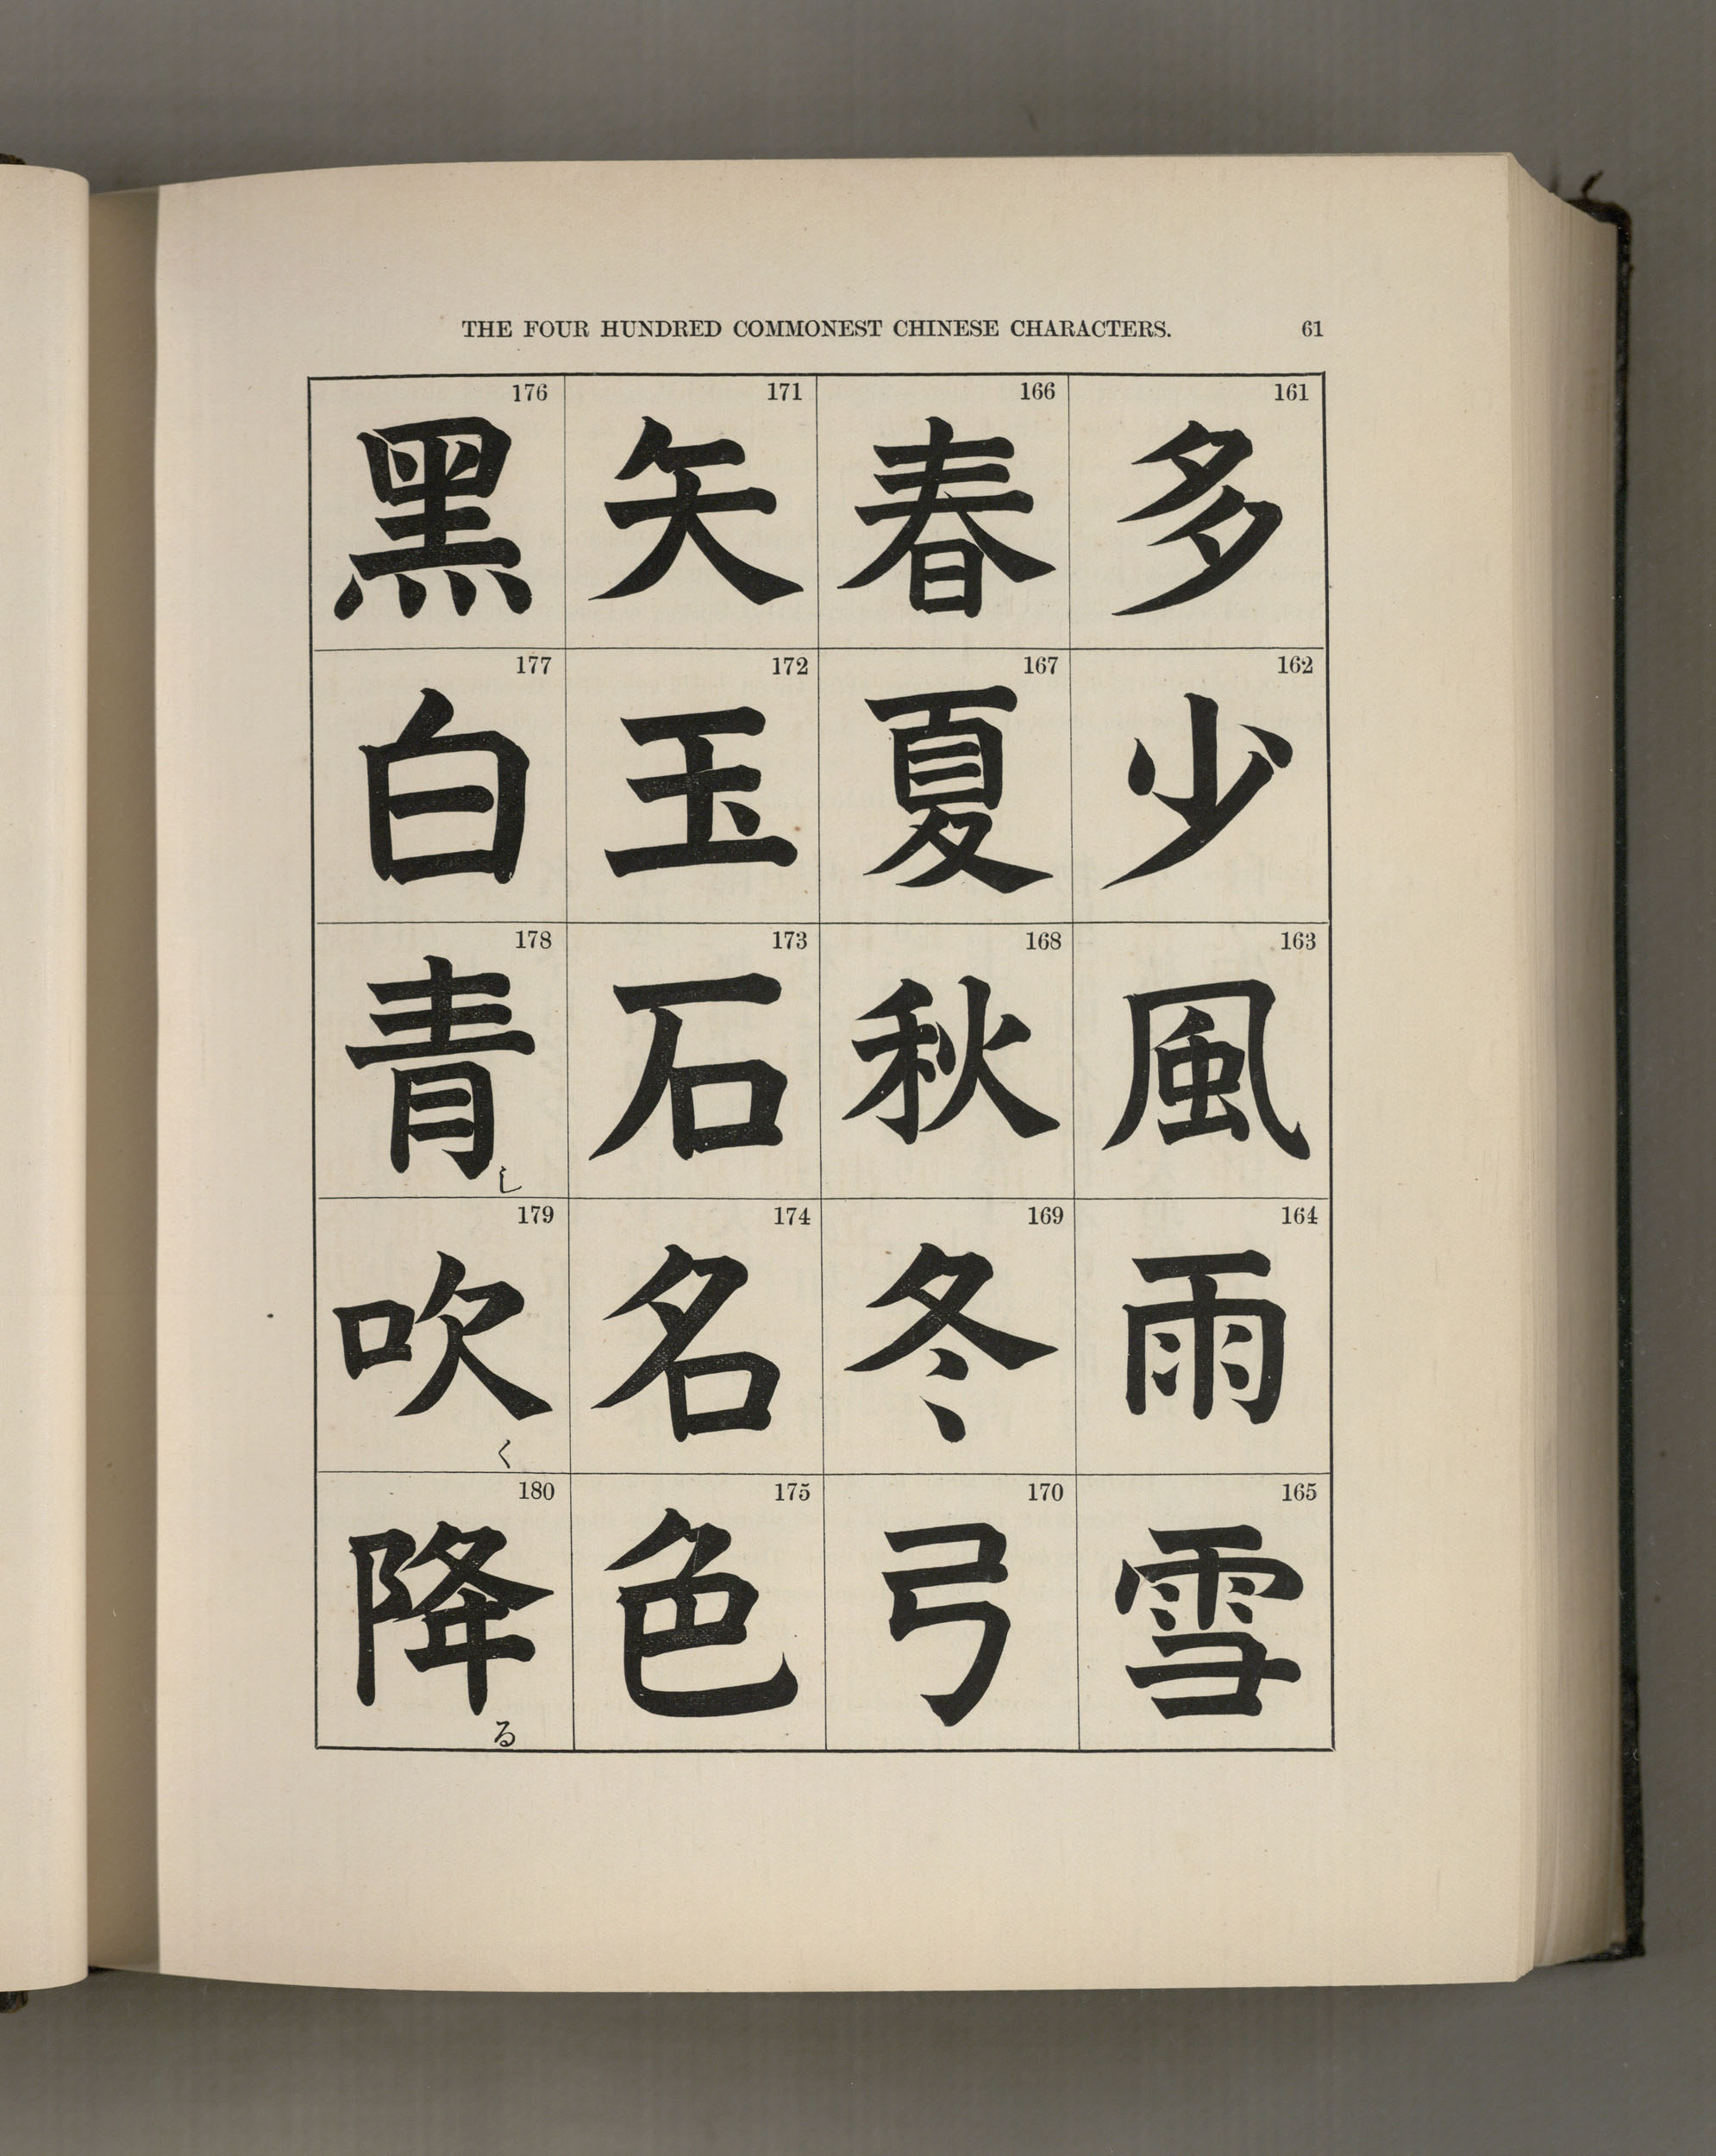 THE FOUR HUNDRED COMMONEST CHINESE CHARACTERS. 61
161
多
162
少
163
風
164
雨
165
雪
166
春
167
夏
168
秋
169
冬
170
弓
171
矢
172
玉
173
石
174
名
175
色
176
黑
177
白
178
青
し
179
吹
く
180
降
る